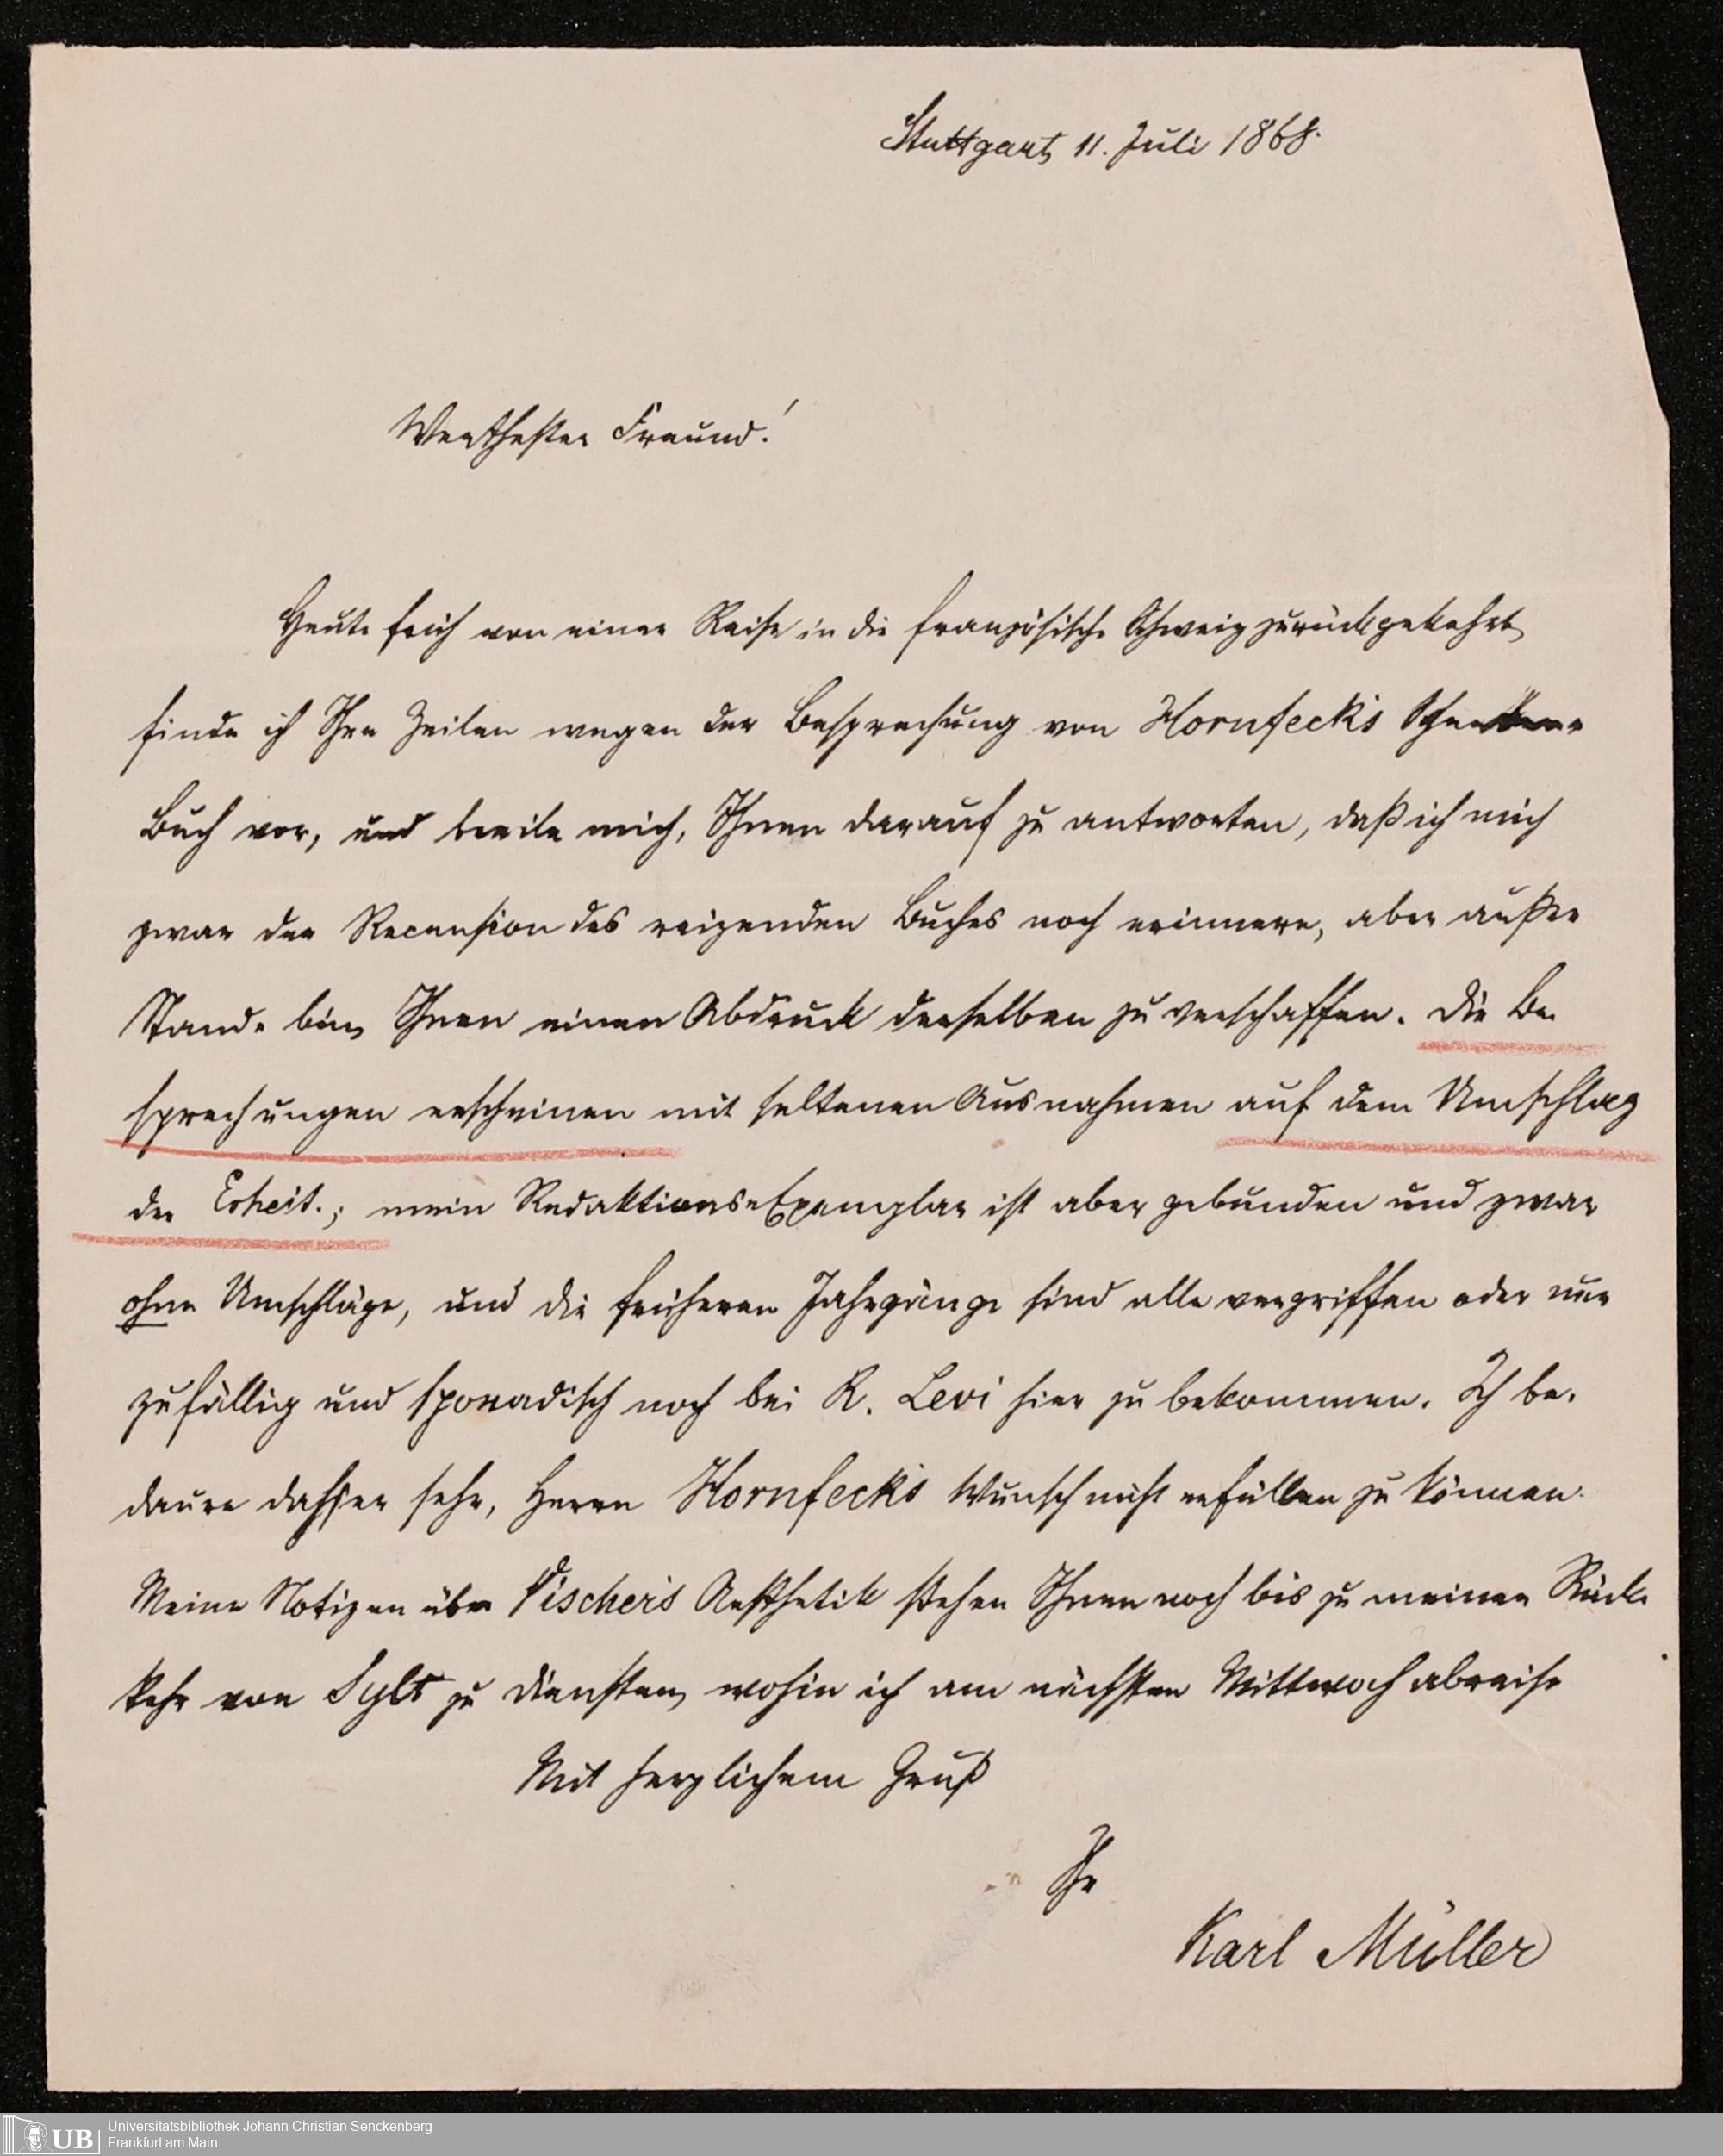 Stuttgart, 11. Juli 1868.
Werthester Freund!
Heute früh von einer Reise in die französische Schweiz zurückgekehrt,
finde ich Ihre Zeilen wegen der Besprechung von Hornfeck's
Buch vor, und beeile mich, Ihnen darauf zu antworten, daß ich mich
zwar der Recension des reizenden Buches noch erinnere, aber außer
Stande bin, Ihnen einen Abdruck derselben zu verschaffen. Die Be-
sprechungen erscheinen mit seltenen Ausnahmen auf dem Umschlag
der Erheit.; mein Redaktions-Exemplar ist aber gebunden und zwar
ohne Umschläge, und die früheren Jahrgänge sind alle vergriffen oder nur
zufällig und sporadisch noch bei R. Levi hier zu bekommen. Ich be-
daure daher sehr, Herrn Hornfeck's Wunsch nicht erfüllen zu können.
Meine Notizen über Vischer's Aesthetik stehen Ihnen noch bis zu meiner Rück-
kehr von Sylt zu Diensten, wohin ich am nächsten Mittwoch abreise
Mit herzlichem Gruß
Ihr
Karl Müller
UB
Universitätsbibliothek Johann Christian Senckenberg
Frankfurt am Main